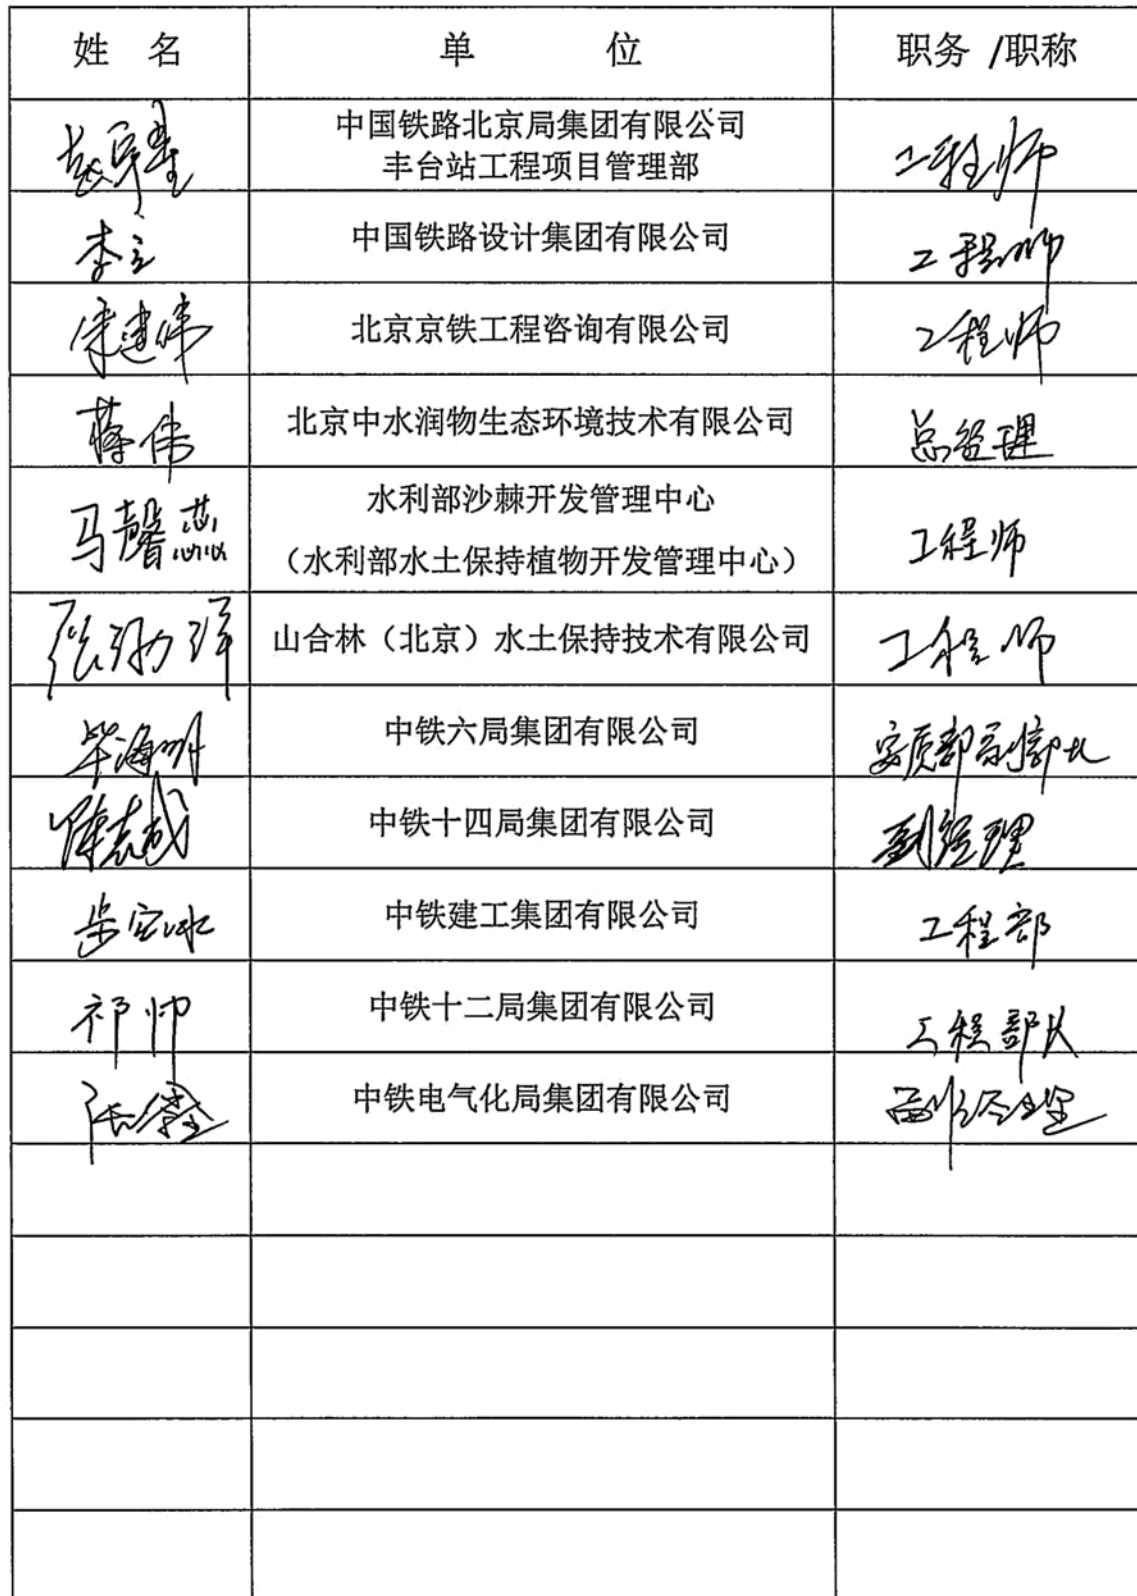 姓 名 单 位 职务 /职称
中国铁路北京局集团有限公司
丰台站工程项目管理部 工程师
李立 中国铁路设计集团有限公司 工程师
宋建伟 北京京铁工程咨询有限公司 工程师
蒋伟 北京中水润物生态环境技术有限公司 总经理
马馨蕊 水利部沙棘开发管理中心 工程师
（水利部水土保持植物开发管理中心）
张 山合林（北京）水土保持技术有限公司 工程师
毕海明 中铁六局集团有限公司 安质部副部长
陈志成 中铁十四局集团有限公司 副经理
中铁建工集团有限公司 工程部
祁帅 中铁十二局集团有限公司 工程部长
张鑫 中铁电气化局集团有限公司 副经理